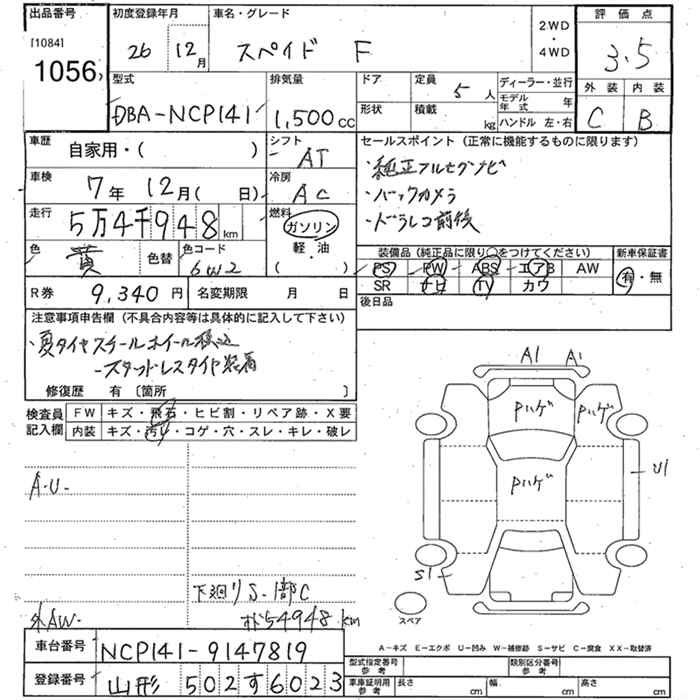 出品番号
[1084]
1056
初度登録年月
26 12月
車名・グレード
スペイド F
2WD
・
4WD
評価点
3.5
外装 内装
C B
型式
DBA-NCP141
排気量
1,500cc
ドア
定員
5人
ディーラー・並行
モデル年式 年
形状
積載
kg
ハンドル 左・右
車歴
自家用・( )
シフト
AT
車検
7年 12月( 日)
冷房
AC
走行
5万4千948km
燃料
ガソリン
軽・油
( )
色
黄
色替
色コード
6W2
R券
9,340円
名変期限 月 日
セールスポイント(正常に機能するものに限ります)
・純正フルセグナビ
・バックカメラ
・ドラレコ前後
装備品(純正品に限り○をつけてください)
新車保証書
PS PW ABS エアB AW
SR ナビ TV カワ
有・無
後日品
注意事項申告欄(不具合内容等は具体的に記入して下さい)
・夏タイヤスチールホイール積込
-スタッドレスタイヤ装着
修復歴 有〔箇所 〕
検査員記入欄
FW キズ・飛石・ヒビ割・リペア跡・X要
内装 キズ・汚レ・コゲ・穴・スレ・キレ・破レ
A1 A1
Pハゲ Pハゲ
A・U-
Pハゲ
U1
S1
下廻りS・1部C
外AW.
54948km
スペア
A-キズ E-エクボ U-凹み W-補修跡 S-サビ C-腐食 XX-取替済
車台番号
NCP141-9147819
登録番号
山形 502す6023
型式指定番号 参考
類別区分番号 参考
車庫証明用 参考
長さ cm
幅 cm
高さ cm